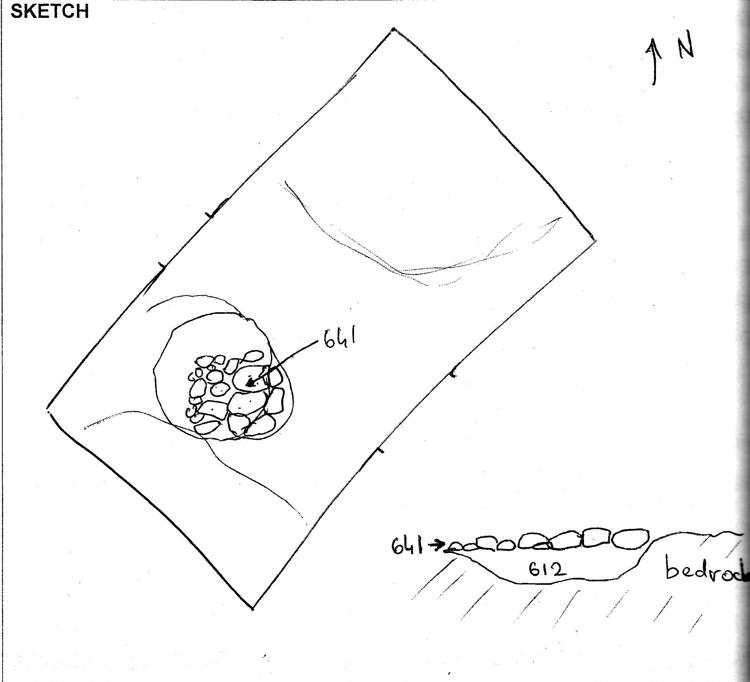 SKETCH
N
641
641
612
bedrock